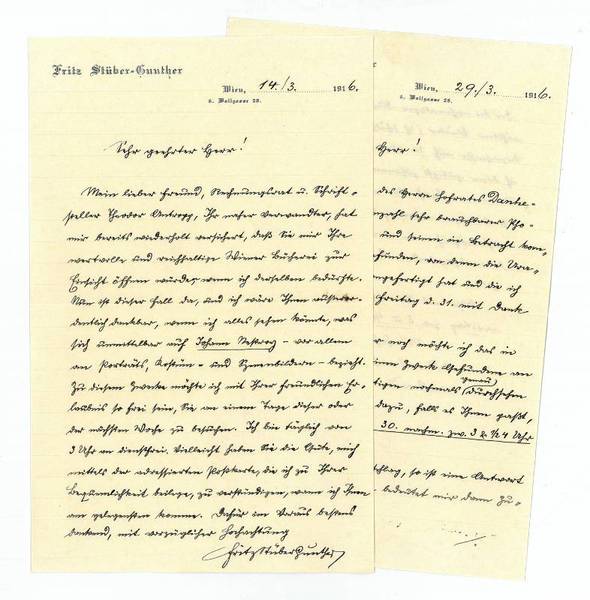 Fritz Stüber-Gunther
Wien, 14./3. 1916.
6. Wallgasse 28.
Sehr geehrter Herr!
Mein lieber Freund, Rechnungsrat u. Schrift-
steller Theodor Antropp, Ihr naher Verwandter, hat
mir bereits wiederholt versichert, daß Sie mir Ihre
wertvolle und reichhaltige Wiener Bücherei zur
Einsicht öffnen würden, wenn ich derselben bedürfte.
Nun ist dieser Fall da, und ich wäre Ihnen außeror-
dentlich dankbar, wenn ich alles sehen könnte, was
sich unmittelbar auf Johann Nestroy - vor allem
an Porträts, Kostüm- und Szenenbildern - bezieht.
Zu diesem Zwecke möchte ich mit Ihrer freundlichen Er-
laubnis so frei sein, Sie an einem Tage dieser oder
der nächsten Woche zu besuchen. Ich bin täglich von
3 Uhr an dienstfrei. Vielleicht haben Sie die Güte, mich
mittels der adressierten Postkarte, die ich zu Ihrer
Bequemlichkeit beilege, zu verständigen, wann ich Ihnen
am gelegensten komme. Dafür im Voraus bestens
dankend, mit vorzüglicher Hochachtung
Fritz Stüber Gunther
Wien, 29./3. 1916.
6. Wallgasse 28.
Herr!
des Herrn Hofrates Danhe-
zahl sehr brauchbarer Pho-
und seinen in Betracht kom-
funden, von denen die
angefertigt hat und die ich
Freitag d. 31. mit Dank
noch möchte ich das in
Zwecke Gefundene an
nochmals genau durchsehen
dazu, falls es Ihnen paßt,
30. nachm. zw. 3 u. 1/2 4 Uhr
schlag, so ist eine Antwort
bedeutet mir dann Zu-